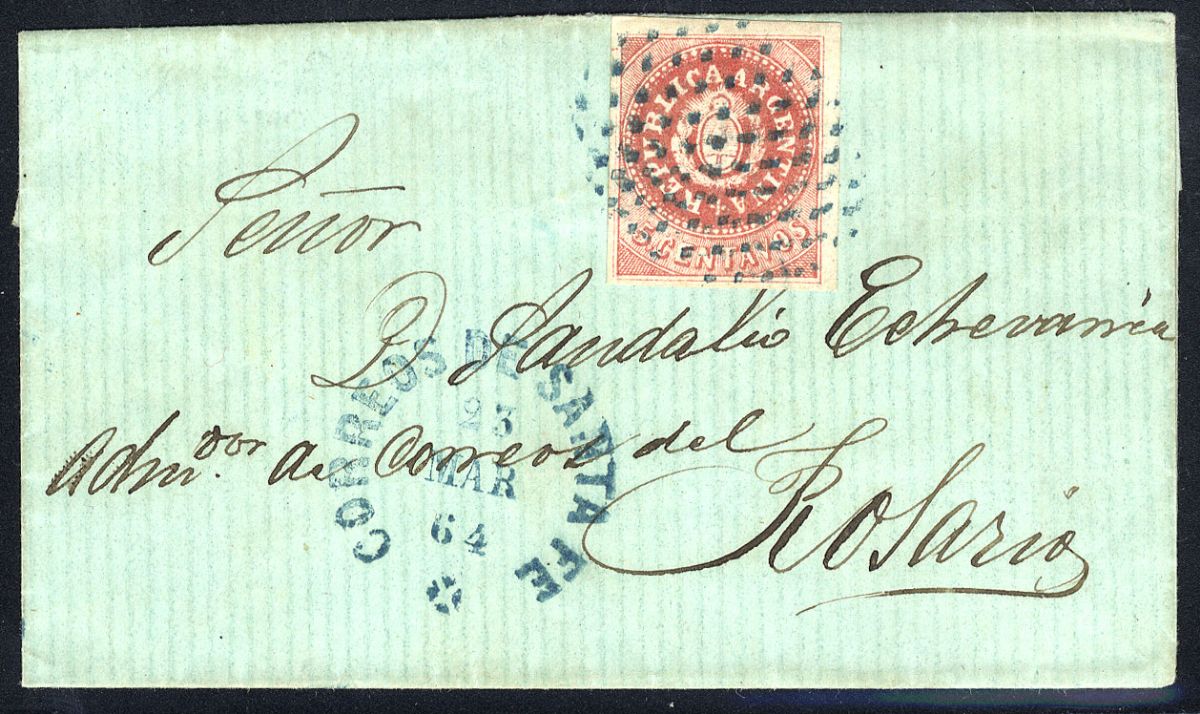 REPUBLICA ARGENTINA
5 CENTAVOS
Señor
D Sandalio Echevarria
Adm.or de Correos del
Rosario
CORREOS DE SANTA FE
23
MAR
64